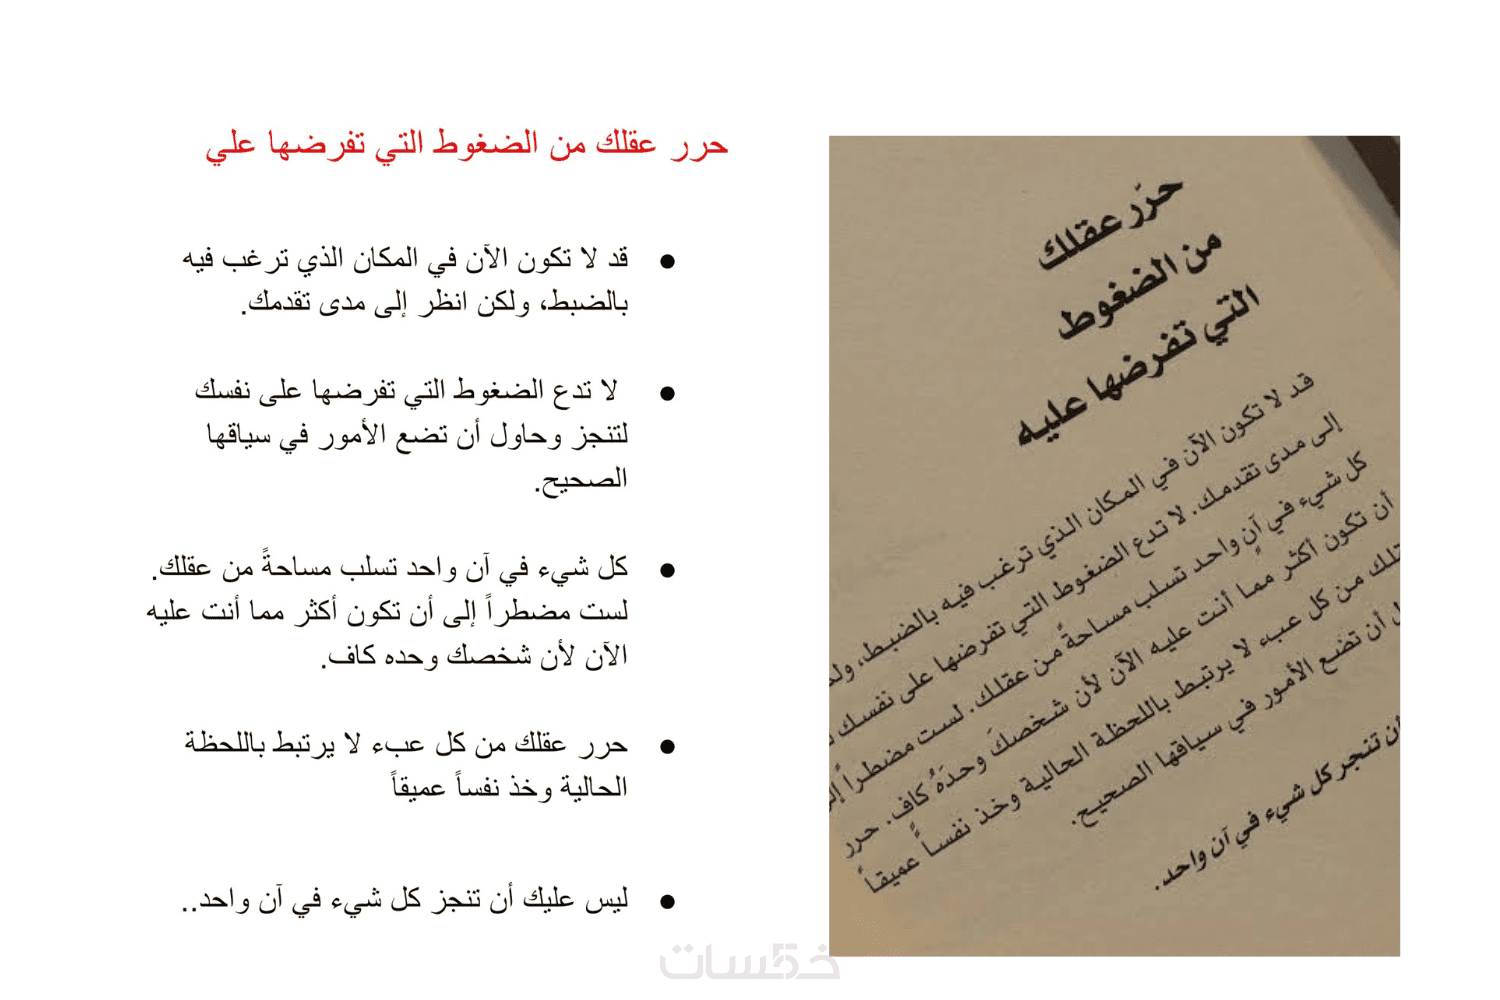 حرر عقلك من الضغوط التي تفرضها علي
● قد لا تكون الآن في المكان الذي ترغب فيه
بالضبط، ولكن انظر إلى مدى تقدمك.
● لا تدع الضغوط التي تفرضها على نفسك
لتنجز وحاول أن تضع الأمور في سياقها
الصحيح.
● كل شيء في آن واحد تسلب مساحةً من عقلك.
لست مضطراً إلى أن تكون أكثر مما أنت عليه
الآن لأن شخصك وحده كاف.
● حرر عقلك من كل عبء لا يرتبط باللحظة
الحالية وخذ نفساً عميقاً
● ليس عليك أن تنجز كل شيء في آن واحد..
حرّر عقلك
من الضغوط
التي تفرضها عليه
قد لا تكون الآن في المكان الذي ترغب فيه بالضبط،
إلى مدى تقدمك. لا تدع الضغوط التي تفرضها على نفسك
كل شيء في آنٍ واحد تسلب مساحةً من عقلك. لست مضطراً
أن تكون أكثر مما أنت عليه الآن لأن شخصكَ وحدَهُ كاف. حرر
من كل عبء لا يرتبط باللحظة الحالية وخذ نفساً عميقاً
أن تضع الأمور في سياقها الصحيح.
تنجز كل شيء في آن واحد.
خمسات